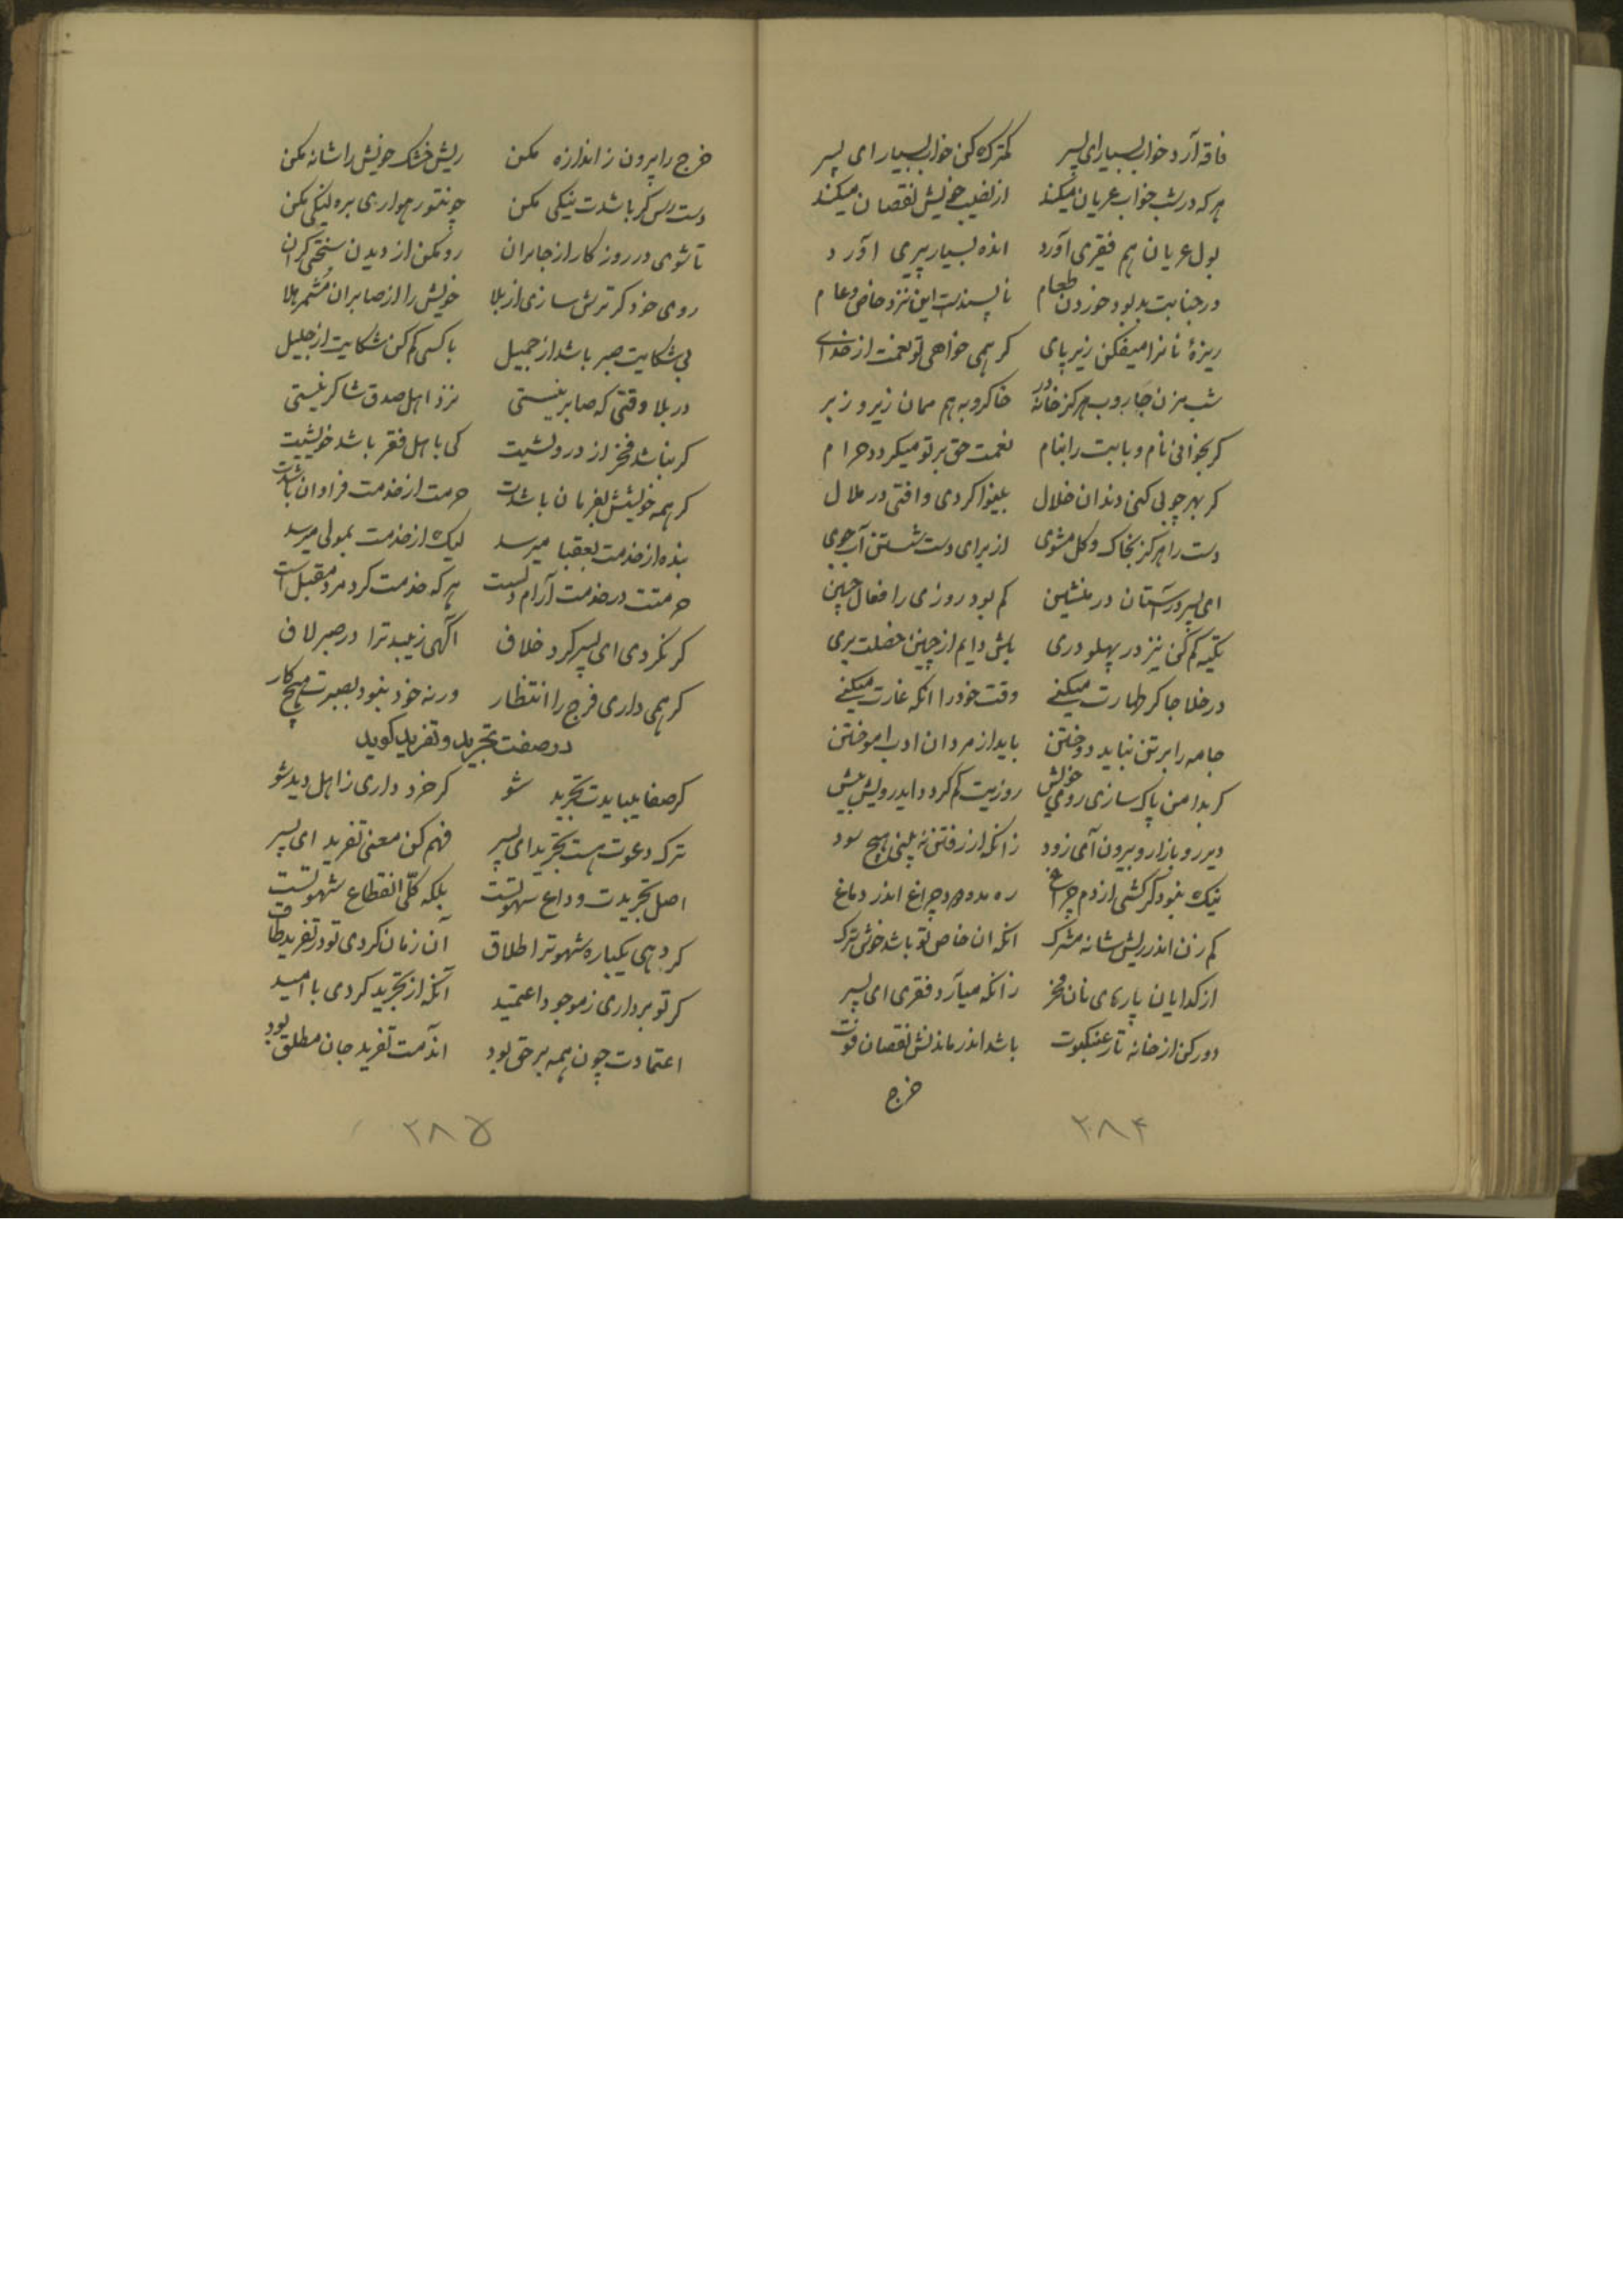 فاقه آرد خواب بسیار ای پسر کمترک کن خواب بسیار ای پسر
هرکه در شب خواب عریان میکند از نصیب خویش نقصان میکند
بول عریان هم فقیری آورد انده بسیار پیری آورد
در جنابت بد بود خوردن طعام ناپسندست این نزد خاص و عام
ریزهٔ نانرا میفکن زیر پای کر همی خواهی تو نعمت از خدای
شب مزن جاروب هرکز خانه در خاکروبه هم ممان زیر و زبر
کر بخوانی نام و بابت را بنام نعمت حق بر تو میکردد حرام
کر بهر چوبی کنی دندان خلال بینوا کردی و افتی در ملال
دست را هرکز بخاک و کل مشوی از برای دست شستن آب جوی
ای پسر در آستان در منشین کم بود روزی را فعال چنین
تکیه کم کن نیز در پهلو دری باش دایم از چنین خصلت بری
در خلا جا کر طهارت میکنے وقت خود را انکه غارت میکنے
جامه را بر تن نباید دوختن باید از مردان ادب اموختن
کر بدامن پاک سازی روی خویش روزیت کم کردد اید رویش بیش
دیر رو بازار و بیرون آی زود زانکه از رفتن نه بینی هیچ سود
نیک نبود کر کشی از دم چراغ ره مده دود چراغ اندر دماغ
کم زن اندر ریش شانه مشترک انکه ان خاص تو باشد خوش ترک
از کدایان پارهای نان مخر زانکه میآرد فقری ای پسر
دور کن از خانه تار عنکبوت باشد اندر ماندنش نقصان قوت
خرج
۲۸۴
خرج را بیرون ز اندازه مکن ریش خشک خویش را شانه مکن
دست رس کر باشدت نیکی مکن چونتو رهواری بره لنکی مکن
تا شوی در روزکار از جابران رو مکن از دیدن سختی کران
روی خود کر ترش سازی از بلا خویش را از صابران مشمر هلا
بی شکایت صبر باشد از جمیل با کسی کم کن شکایت از جلیل
در بلا وقتی که صابر نیستی نزد اهل صدق شاکر نیستی
کر نباشد فخر از درویشیت کی با اهل فقر باشد خویشیت
کر همه خویشش بفرمان باشدت حرمت از خدمت فراوان باشدت
بنده از خدمت بعقبا میرسد لیک از خدمت بمولی میرسد
حرمتت در خدمت آرام دلست هرکه خدمت کرد مرد مقبلست
کر نکردی ای پسر کرد خلاف آکهی زیبد ترا در صبر لاف
کر همی داری فرج را انتظار ورنه خود نبود بصبرت هیچ کار
در صفت تجرید و تفرید کوید
کر صفا میبایدت تجرید شو کر خرد داری ز اهل دید شو
ترک دعوت هست تجرید ای پسر فهم کن معنی تفرید ای پسر
اصل تجریدت وداع شهوتست بلکه کلّی انقطاع شهوتست
کر دهی یکباره شهوترا طلاق آن زمان کردی تو در تفرید طاق
کر تو برداری ز موجود اعتمید آنکه از تجرید کردی با امید
اعتمادت چون همه بر حق بود اندمت تفرید جان مطلق بود
۲۸۵